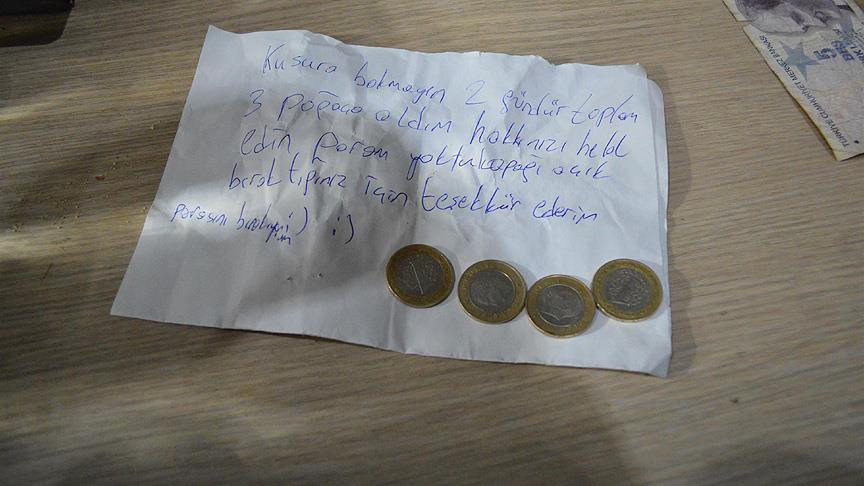 Kusura bakmayın 2 gündür toplam
3 poğaça aldım hakkınızı helal
edin param yoktu kapağı açık
bıraktığınız için teşekkür ederim
parasını bırakıyorum :) :)
TÜRKİYE CUMHURİYET MERKEZ BANKASI
5
BEŞ